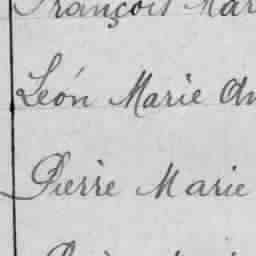 François Mar
Léon Marie An
Pierre Marie